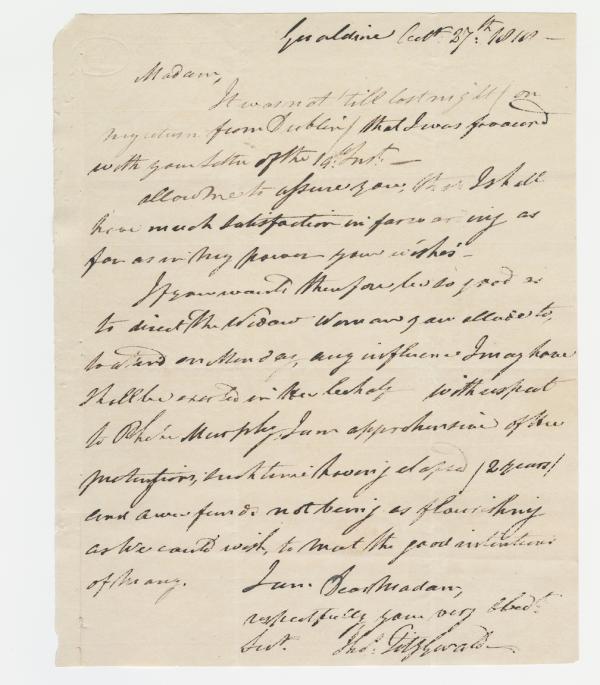 Geraldine Octr. 27th. 1818 —
Madam,
It was not 'till last night / on
my return from Dublin / that I was favoured
with your letter of the 19th. Inst. —
allow me to assure you, that I shall
have much satisfaction in forwarding as
far as in my power your wishes —
If you would therefore be so good as
to direct the Widow Woman you allude to,
to attend on Monday, any influence I may have
shall be exerted in her behalf with respect
to Murphy, I am apprehensive of the
pretentions, such time having elapsed / 2 years /
and our funds not being as flourishing
as we could wish, to meet the good intentions
of many.
I am Dear Madam,
respectfully your very Obedt.
Servt. Thos. Fitzgerald